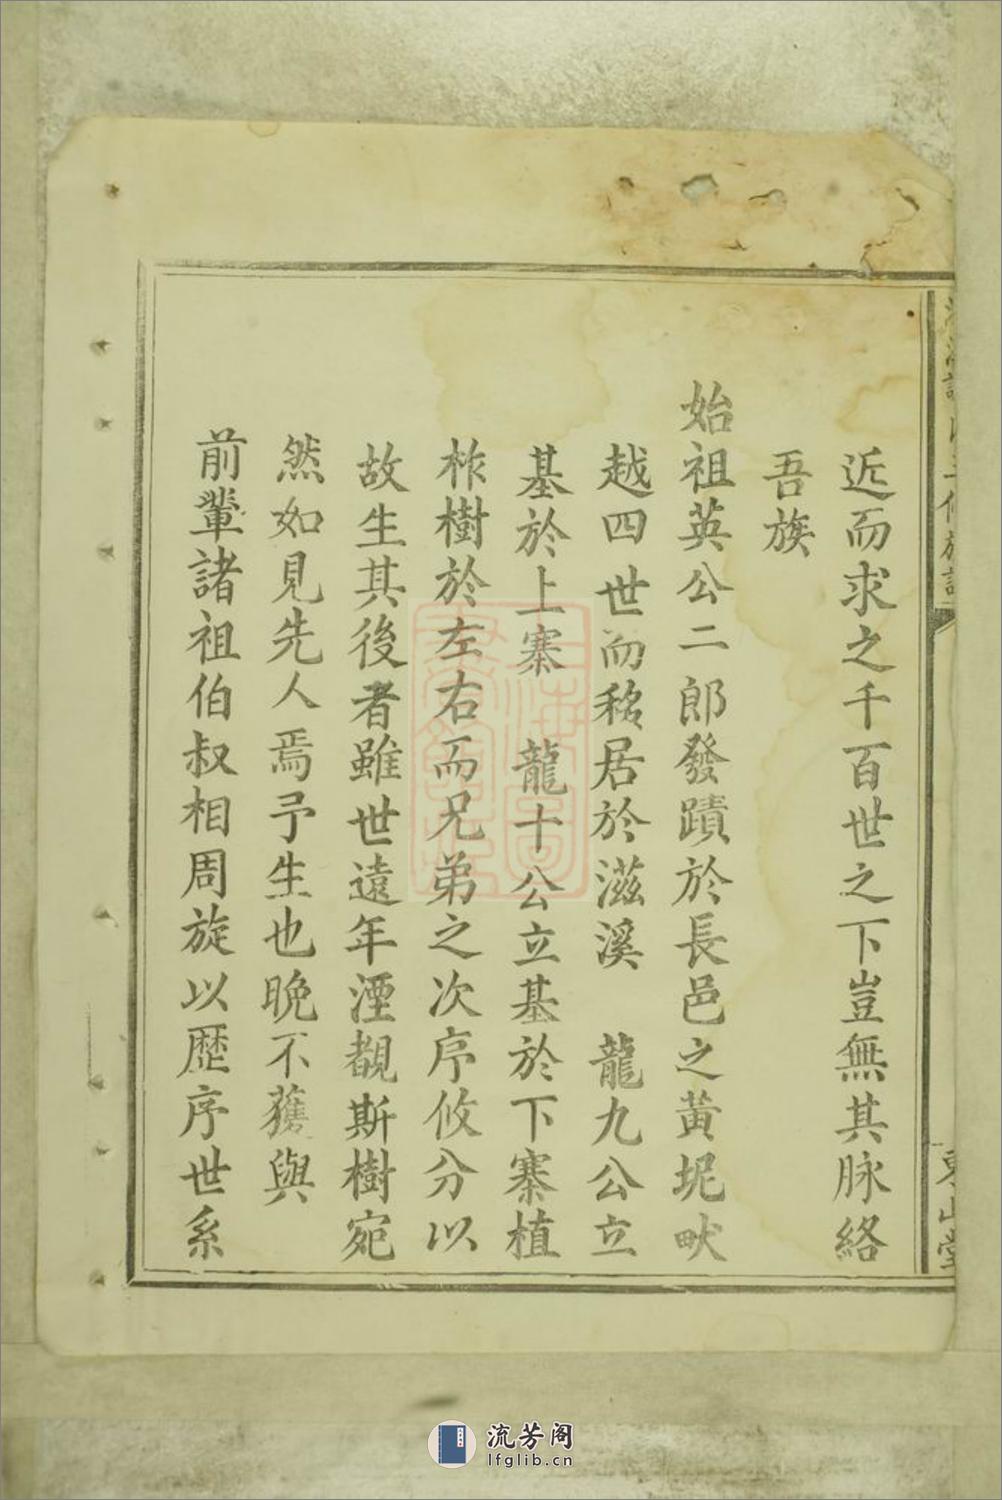 近而求之千百世之下豈無其脉絡
吾族
始祖英公二郎發蹟於長邑之黃坭畎
越四世而移居於滋溪　龍九公立
基於上寨　龍十公立基於下寨植
柞樹於左右而兄弟之次序攸分以
故生其後者雖世遠年湮覩斯樹宛
然如見先人焉予生也晚不獲與
前輩諸祖伯叔相周旋以歷序世系
東山堂
流芳阁
lfglib.cn